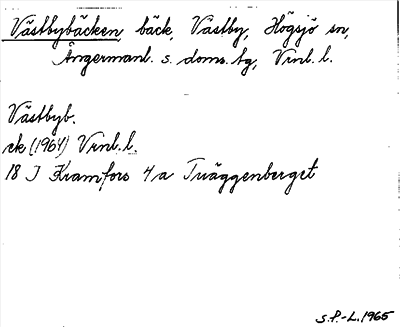 Västbybäcken, bäck, Västby, Högsjö sn,
Ångermanl. s. doms. tg, Vrnl. l.
Västbyb.
ek (1964) Vrnl. l.
18 J Kramfors 4 a Tväggenberget
S.P.-L. 1965